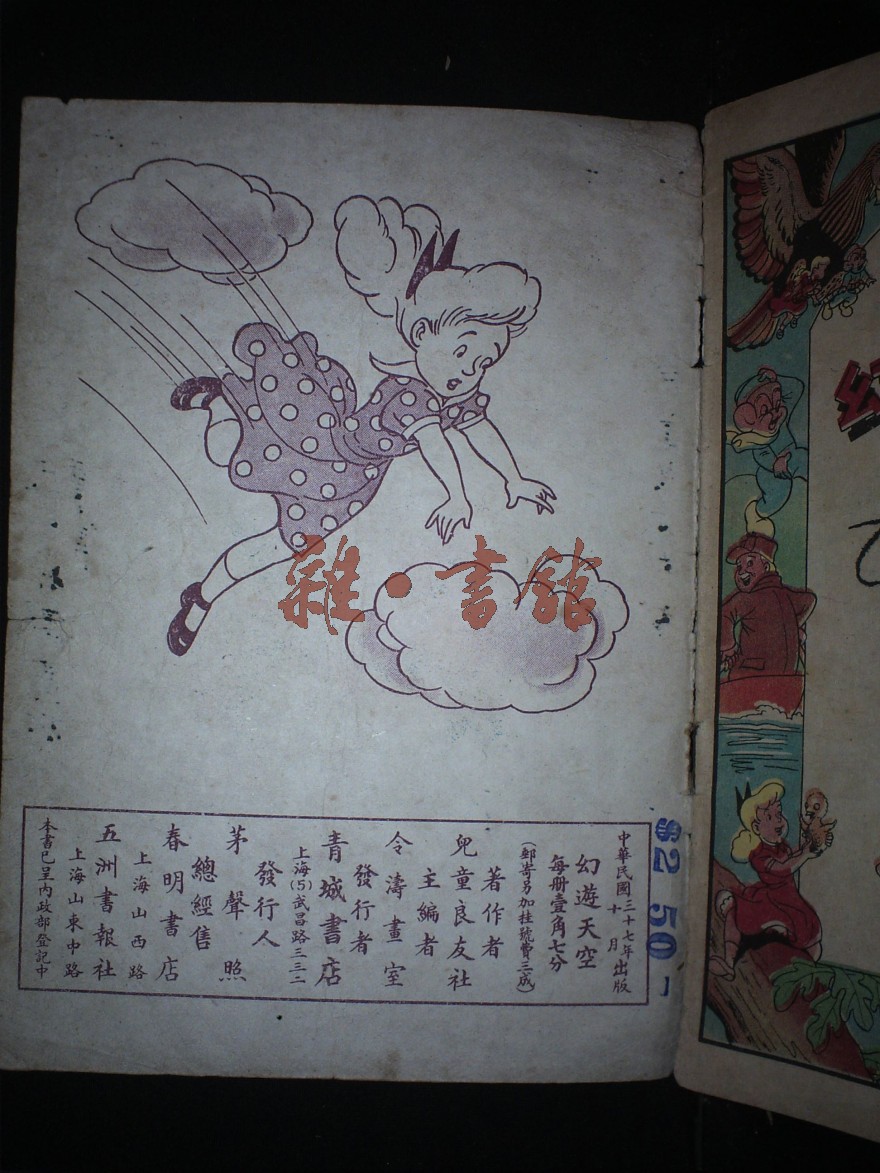 雜·書館
中華民國三十七年十月出版
幻遊天空
每册壹角七分
(郵寄另加挂號費三成)
著作者
兒童良友社
主編者
令濤畫室
發行者
青城書店
上海(5)武昌路三三二
發行人
茅聲熙
總經售
春明書店
上海山西路
五洲書報社
上海山東中路
本書已呈內政部登記中
$2 50
幻